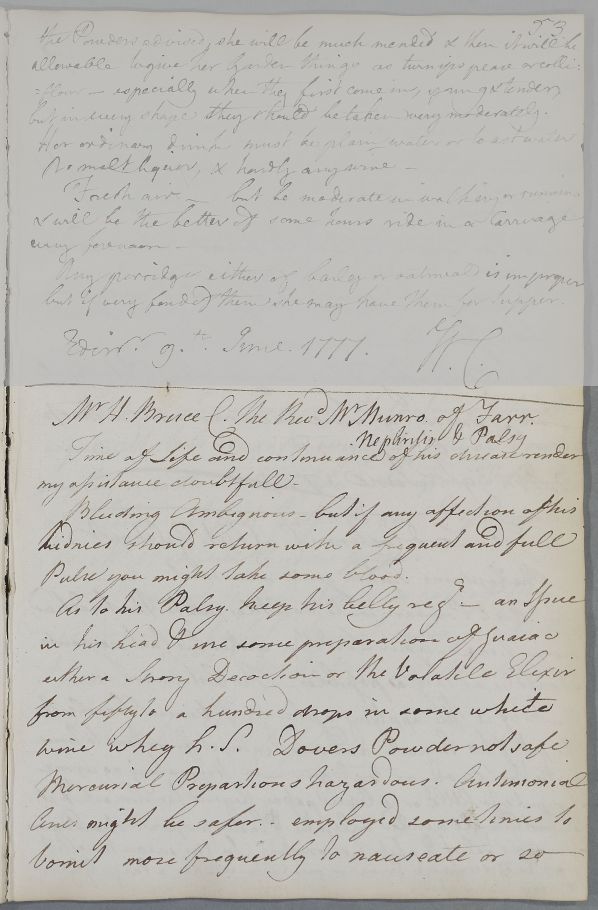 23
the Powders advised, she will be much mended & then it will be
allowable to give her harder things as turnips pease or colli:
=flour - especially when they first come in, young & tender,
but in every shape they should be taken very moderately.
Her ordinary drink must be plain water or toast water
No malt liquor, & hardly any wine -
Fresh air - but be moderate in walking or running
& will be the better of some hours ride in a Carriage
every forenoon -
Any porridge either of barley or oatmeal is improper
but if very fond of them she may have them for supper.
Edinr. 9.th June. 1777. W. C.
Mr H. Bruce C. the Revd Mr Munro of Farr.
Nephritis & Palsy
Time of Life and continuance of his disease render
my assistance doubtfull -
Bleeding Ambiguous - but if any affection of his
kidnies should return with a frequent and full
Pulse you might take some blood.
As to his Palsy. keep his belly regr - an Issue
in his head & use some preparation of Guaiac
either a Strong Decoction or the Volatile Elixir
from fifty to a hundred drops in some white
wine whey h. S. Dovers Powder not safe
Mercurial Prepartions hazardous. Antimonial
ones might be safer - employed sometimes to
Vomit more frequently to nauseate or so